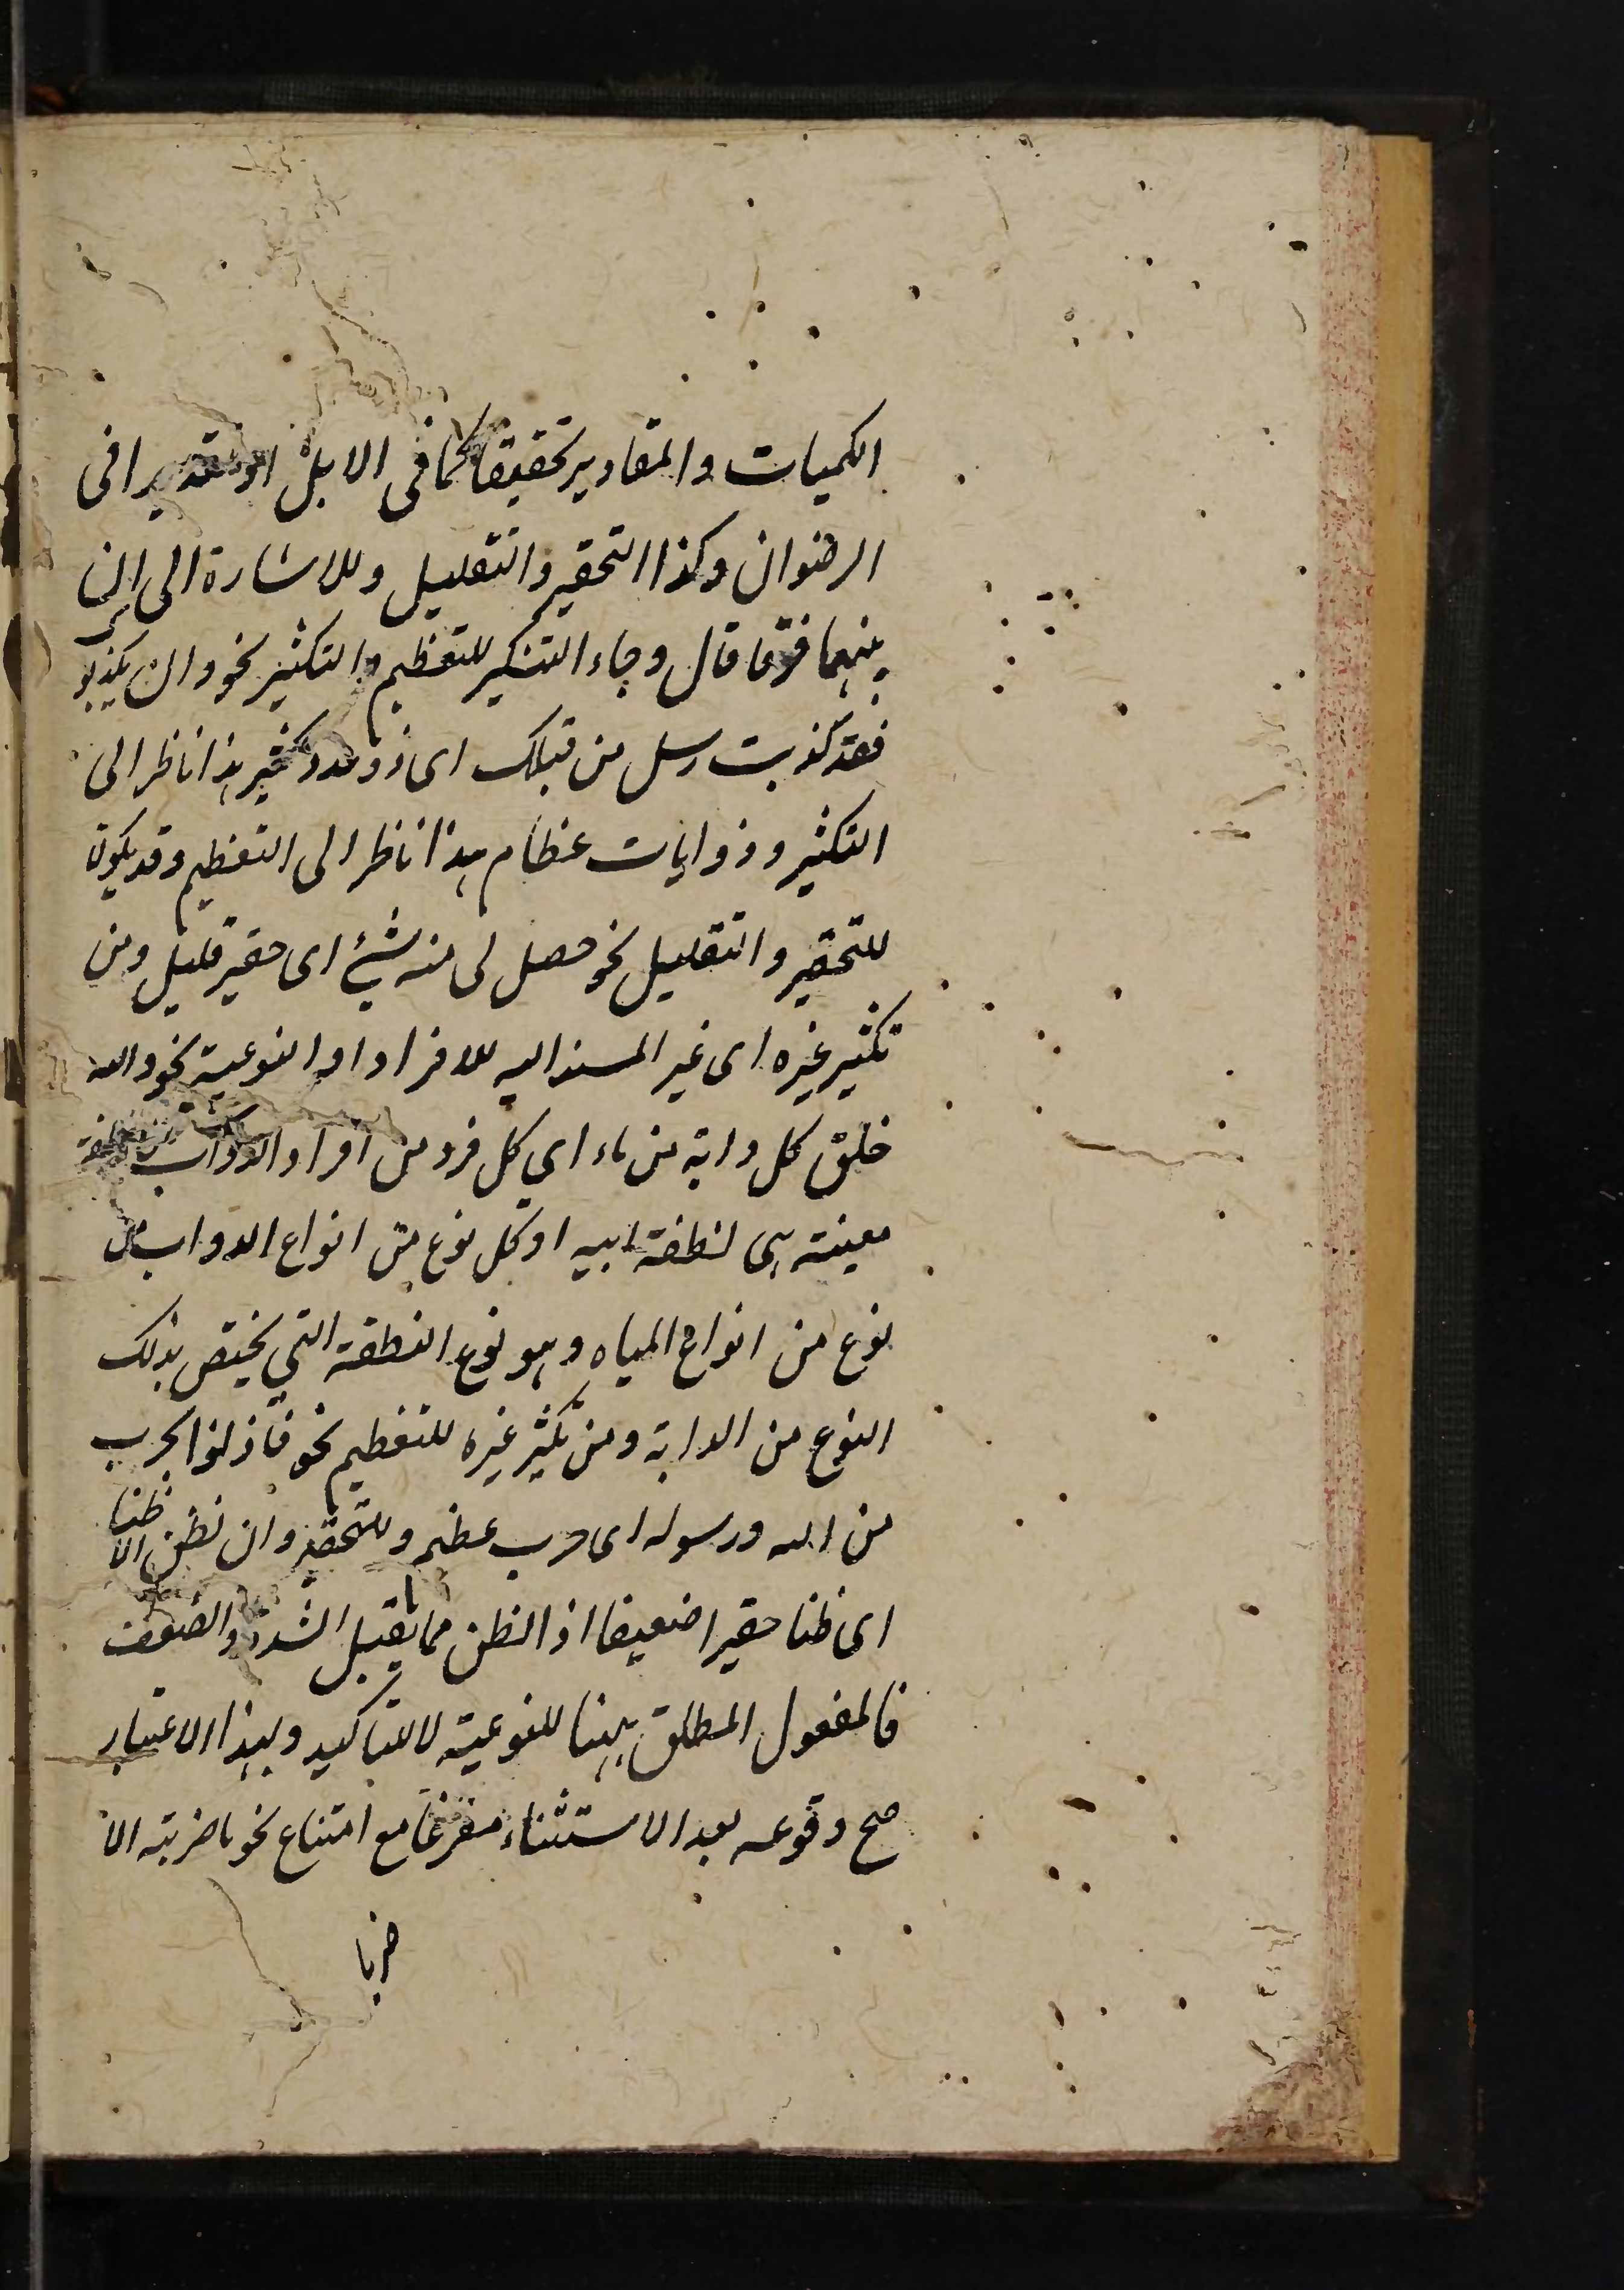 الكميات والمقادير تحقيقا كما فى الابل او تقديرا فى
الرضوان وكذا التحقير والتقليل وللاشارة الى ان
بينهما فرقا قال وجاء التنكير للتعظيم والتكثير نحو وان يكذبوك
فقد كذبت رسل من قبلك اى ذوو عدد كثير هذا ناظر الى
التكثير وذو ايات عظام هذا ناظر الى التعظيم وقد يكون
للتحقير والتقليل نحو حصل لى منه شئ اى حقير قليل ومن
تكثير غيره اى غير المسند اليه للافراد او النوعية نحو والله
خلق كل دابة من ماء اي كل فرد من افراد الدواب من نطفة
معينة هى نطفة ابيه او كل نوع من انواع الدواب من
نوع من انواع المياه وهو نوع النطفة التي يختص بذلك
النوع من الدابة ومن تكثير غيره للتعظيم نحو فأذنوا بحرب
من الله ورسوله اى حرب عظيم وللتحقير وان نظن الا ظنا
اى ظنا حقيرا ضعيفا اذ الظن مما يقبل الشدة والضعف
فالمفعول المطلق ههنا للنوعية لا للتاكيد وبهذا الاعتبار
صح وقوعه بعد الاستثناء مفرغا مع امتناع نحو ما ضربته الا
ضربا